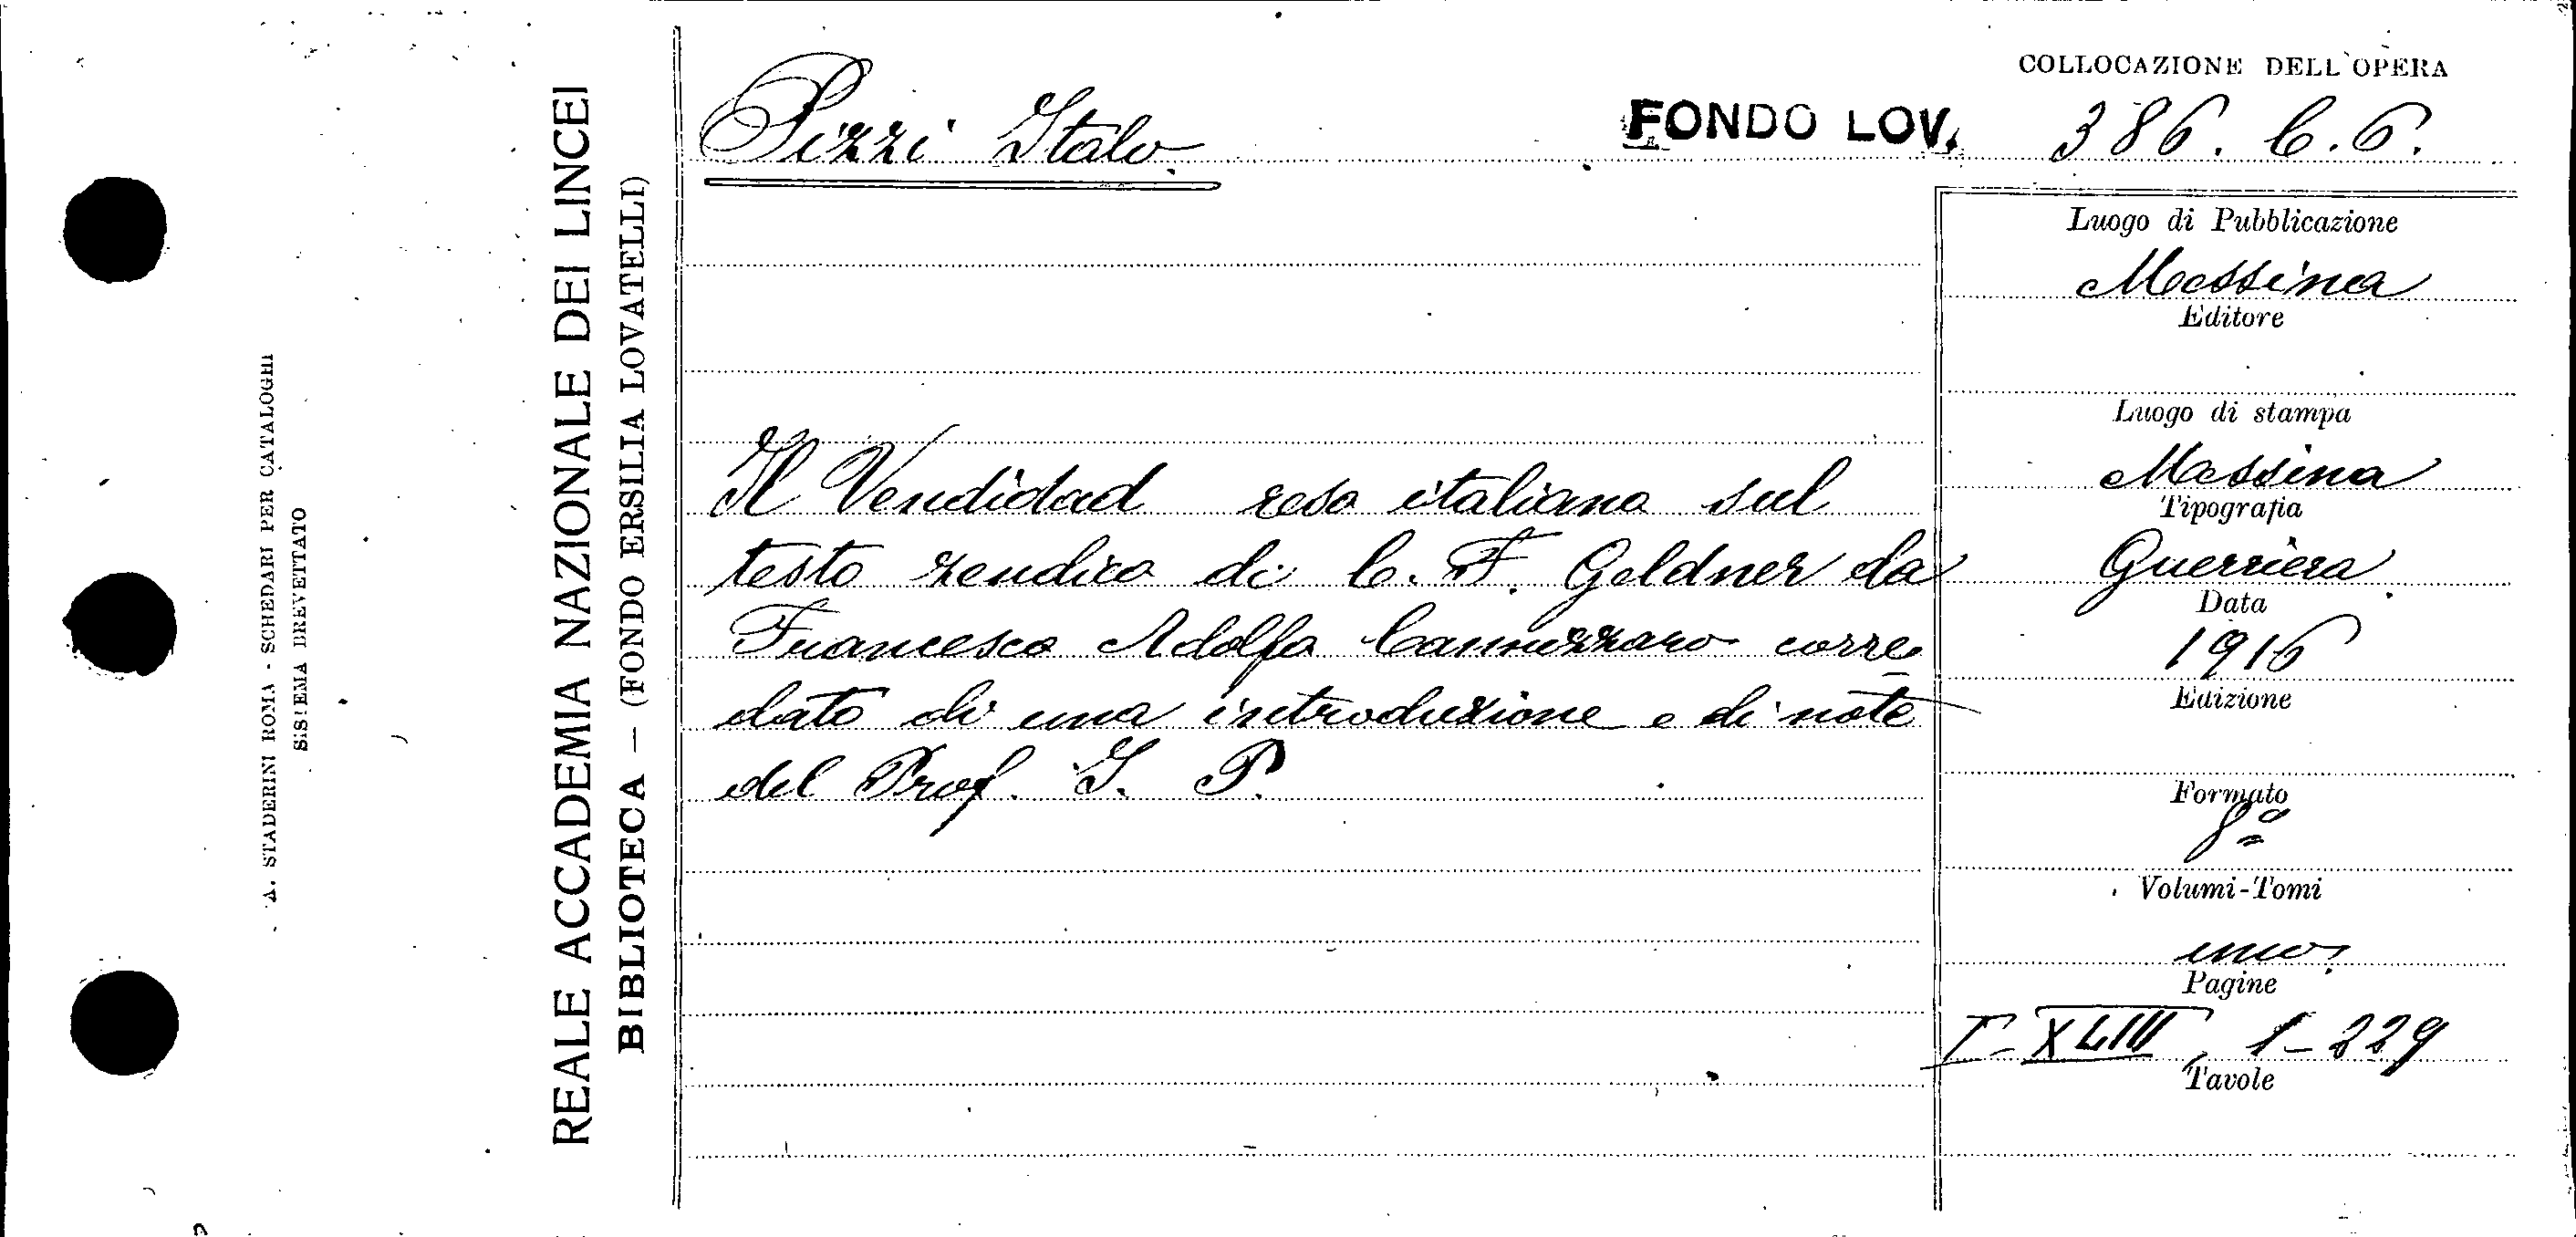 A. STADERINI ROMA - SCHEDARI PER CATALOGHI
SISTEMA BREVETTATO
REALE ACCADEMIA NAZIONALE DEI LINCEI
BIBLIOTECA — (FONDO ERSILIA LOVATELLI)
COLLOCAZIONE DELL'OPERA
Pizzi Italo
FONDO LOV. 386. C. 6.
Il Vendidad reso italiano sul
testo zendico di C. F. Geldner da
Francesco Adolfo Cannizzaro corre-
dato di una introduzione e di note
del Prof. I. P.
Luogo di Pubblicazione
Messina
Editore
Luogo di stampa
Messina
Tipografia
Guerriera
Data
1916
Edizione
Formato
8º
Volumi-Tomi
uno
Pagine
I-XLIII, 1-229
Tavole